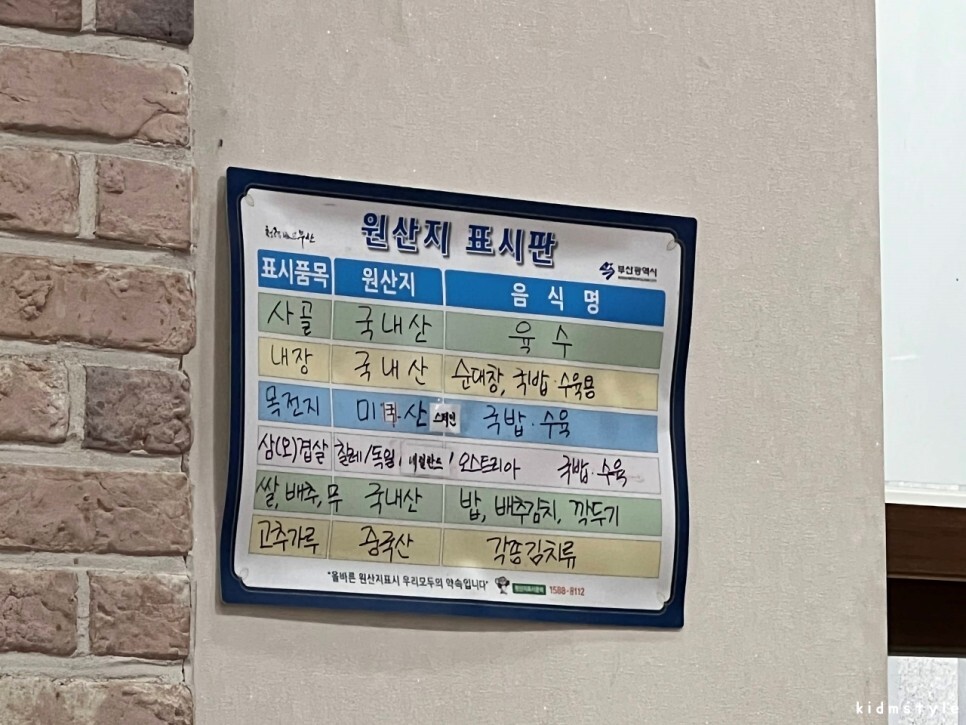 원산지 표시판
부산광역시
표시품목 원산지 음식명
사골 국내산 육수
내장 국내산 순대창, 국밥·수육용
목전지 미국산 스페인 국밥·수육
삼(오)겹살 칠레/독일, 네덜란드, 오스트리아 국밥·수육
쌀, 배추, 무 국내산 밥, 배추김치, 깍두기
고추가루 중국산 각종김치류
"올바른 원산지표시 우리모두의 약속입니다" 1588-8112
kidmstyle